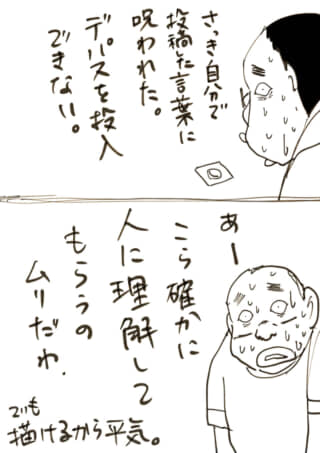 さっき自分で
投稿した言葉に
呪われた。
デパスを投入
できない。
あー
こら確かに
人に理解して
もらうの
ムリだわ.
でも
描けるから平気。